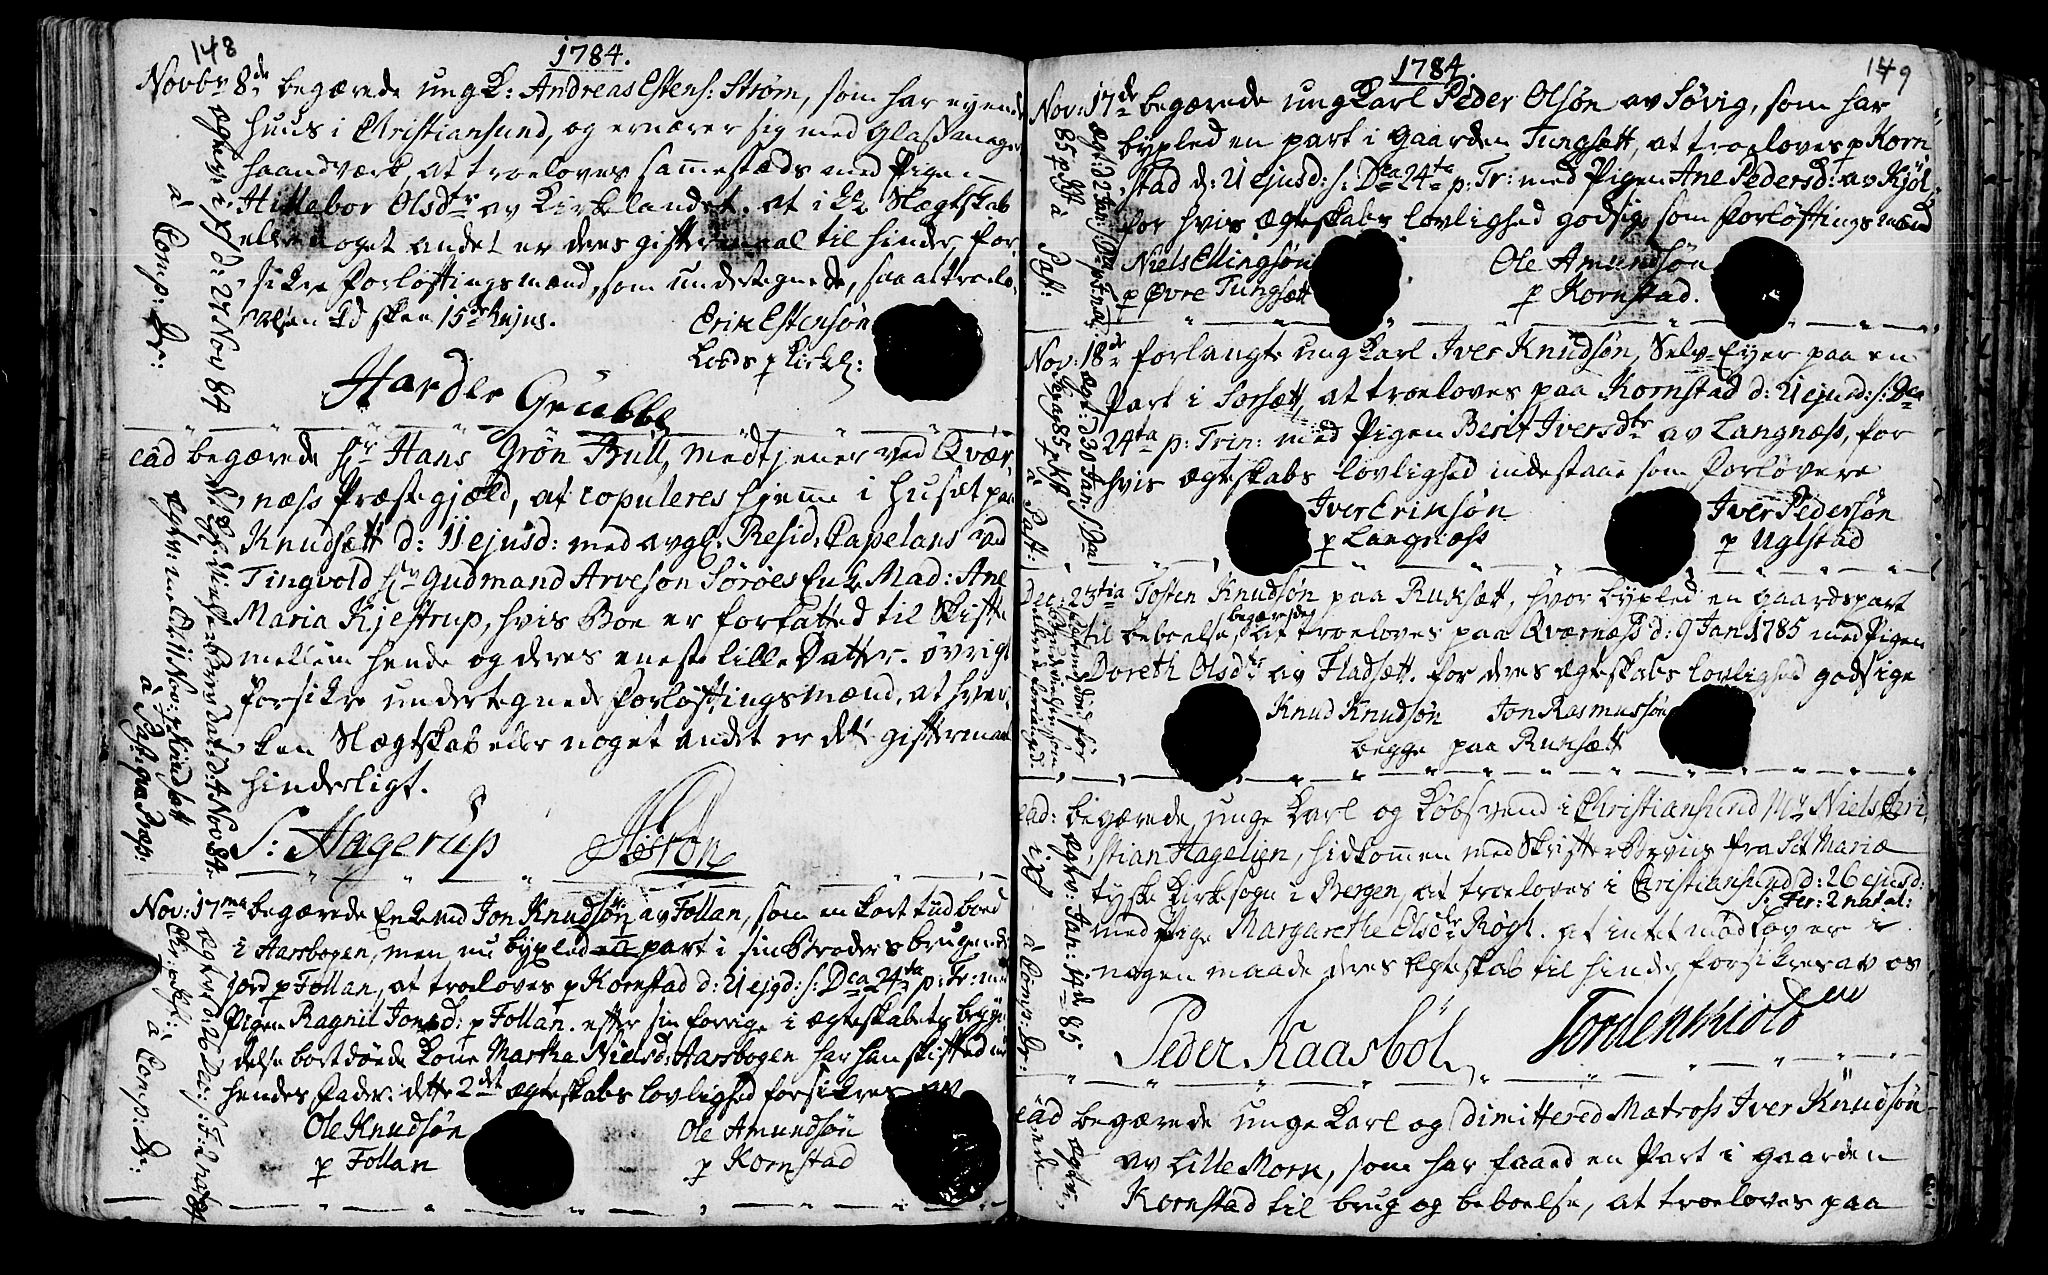 148
1784.
Novbr 8de begærede ung K: Andreas Estens: Strøm, som har eyende
huus i Christiansund, og ernærer sig med Glassmager
haandværk, at troeloves samestæds med Pigen
Hillebor Olsdtr av Kirkelandet. at ikke Slægtskab
eller noget andet er deres giftermaal til hinder, for,
sikre Forløftingsmænd, som undertegnede, saa at troelo,
velsen kd skee 15de hujus.
Erik Estensøn
Leeds p Kirkl:
Harder Grubbe
ead begærede Hr Hans Grøn Bull, Medtjener ved Qvær,
næss Præstegjæld, at copuleres hjemme i huset paa
Knudsætt d: 11 ejusd: med avgl. Resid. Capelans ved
Tingvold Hr Gudmand Arvesøn Sørøes Enke Mad: Ane
Maria Kjestrup, hvis Boe er forfatted til Skifte
mellem hende og deres eneste lille Datter. øvrigt
forsikre undertegnede Forløftingsmænd, at hver,
ken Slægtskab eller noget andet er dette giftermaal
hinderligt.
S: Hagerup
Nov: 17ma begærede Enkemd Jon Knudsøn av Follan, som en kort tiid boed
i Aarsbogen, men nu bypled en part i sin Broders brugende
jord p Follan, at troeloves p Kornstad d: 21 ejusd: s: Dca 24ta p: Tr: med
Pigen Ragnil Jonsd: p Follan. efter sin forrige i ægteskabets begyn
delse bortdøde Kone Martha Nielsd: Aarsbogen har han skifted med
hendes Fader. dette 2det ægteskabs lovlighed forsikres av
Ole Knudsøn
p Follan
Ole Amundsøn
p Kornstad
1784.
149
Nov: 17de begærede ung Karl Peder Olsøn av Sørvig, som har
bypled en part i gaarden Tungsætt, at troeloves p Korn,
stad d: 21 ejusd: s: Dca 24ta p: Tr: med Pigen Ane Pedersd: av Kjøl,
for hvis ægteskabs lovlighed godsige som Forløftingsmænd
Niels Ellingsøn
p Øvre Tungsætt
Ole Amundsøn
p Kornstad.
Nov: 18de forlangte ung Karl Iver Knudsøn, Selv-Eyer paa en
Part i Sorsætt, at troeloves paa Kornstad d: 21 ejusd: s: Dca
24ta p: Trin: med Pigen Berit Iversdtr av Langnæss, for
hvis ægteskabs lovlighed indestaae som Forlovere
Iver Eriksøn
p Langnæss
Iver Pedersøn
p Uglstad
Dec: 23tia Tosten Knudsøn paa Ruksætt, hvor bypled en gaardspart
til beboelse, begærede at troeloves paa Qværnæss d: 9 Jan 1785 med Pigen
Doreth Olsdtr av Fladsætt. for deres ægteskabs lovlighed godsige
Knud Knudsøn
Jon Rasmussøn
begge paa Ruksætt
ead: begærede unge Karl og Købsvend i Christiansund Mr Niels Chri,
stian Hagelien, hidkommen med Skrifte Beviis fra Sct Mariæ
tyske Kirkesogn i Bergen, at troeloves i Christiansund d: 26 ejusd:
s: Fer: 2 natal:
med Pige Margarethe Olsdr Røgt. at intet med Lov er i
nogen maade deres Ægteskab til hinder forsikres av os
Peder Kaasbøl
Tordenskiold
ead begærede unge Karl og dimittered Matross Iver Knudsøn
av Lille Morn, som har faaed en Part i gaarden
Kornstad til brug og beboelse, at troeloves paa